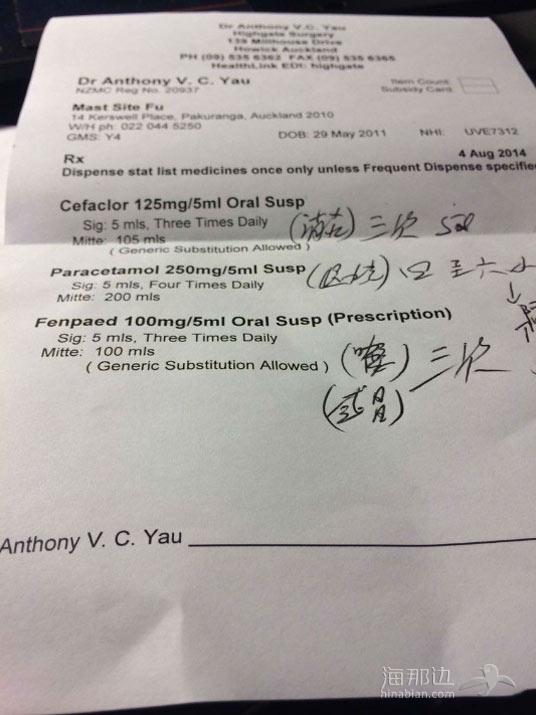 Dr Anthony V.C. Yau
Highgate Surgery
139 Millhouse Drive
Howick Auckland
PH (09) 535 6362 FAX (09) 535 6365
HealthLink EDI: highgate
Dr Anthony V. C. Yau
Item Count
NZMC Reg No. 20937
Subsidy Card
Mast Site Fu
14 Kerswell Place, Pakuranga, Auckland 2010
W/H ph: 022 044 5250
GMS: Y4 DOB: 29 May 2011 NHI: UVE7312
Rx 4 Aug 2014
Dispense stat list medicines once only unless Frequent Dispense specifie
Cefaclor 125mg/5ml Oral Susp
Sig: 5 mls, Three Times Daily 三次
Mitte: 105 mls
( Generic Substitution Allowed )
Paracetamol 250mg/5ml Susp 四至六小
Sig: 5 mls, Four Times Daily
Mitte: 200 mls
Fenpaed 100mg/5ml Oral Susp (Prescription)
Sig: 5 mls, Three Times Daily
Mitte: 100 mls 三次
( Generic Substitution Allowed )
Anthony V. C. Yau
海那边
hinabian.com